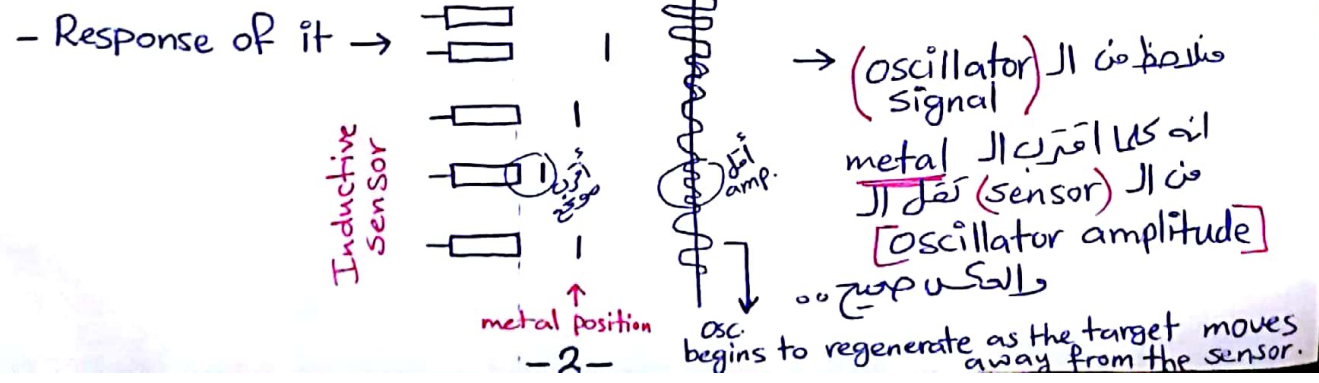 - Response of it →
Inductive
sensor
أقرب
موضع
↑
metal position
أقل
amp.
→ نلاحظ من الـ (oscillator
signal)
انه كلما اقترب الـ metal
من الـ (sensor) تقل الـ
[oscillator amplitude]
والعكس صحيح ..
osc.
begins to regenerate as the target moves
away from the sensor.
-2-